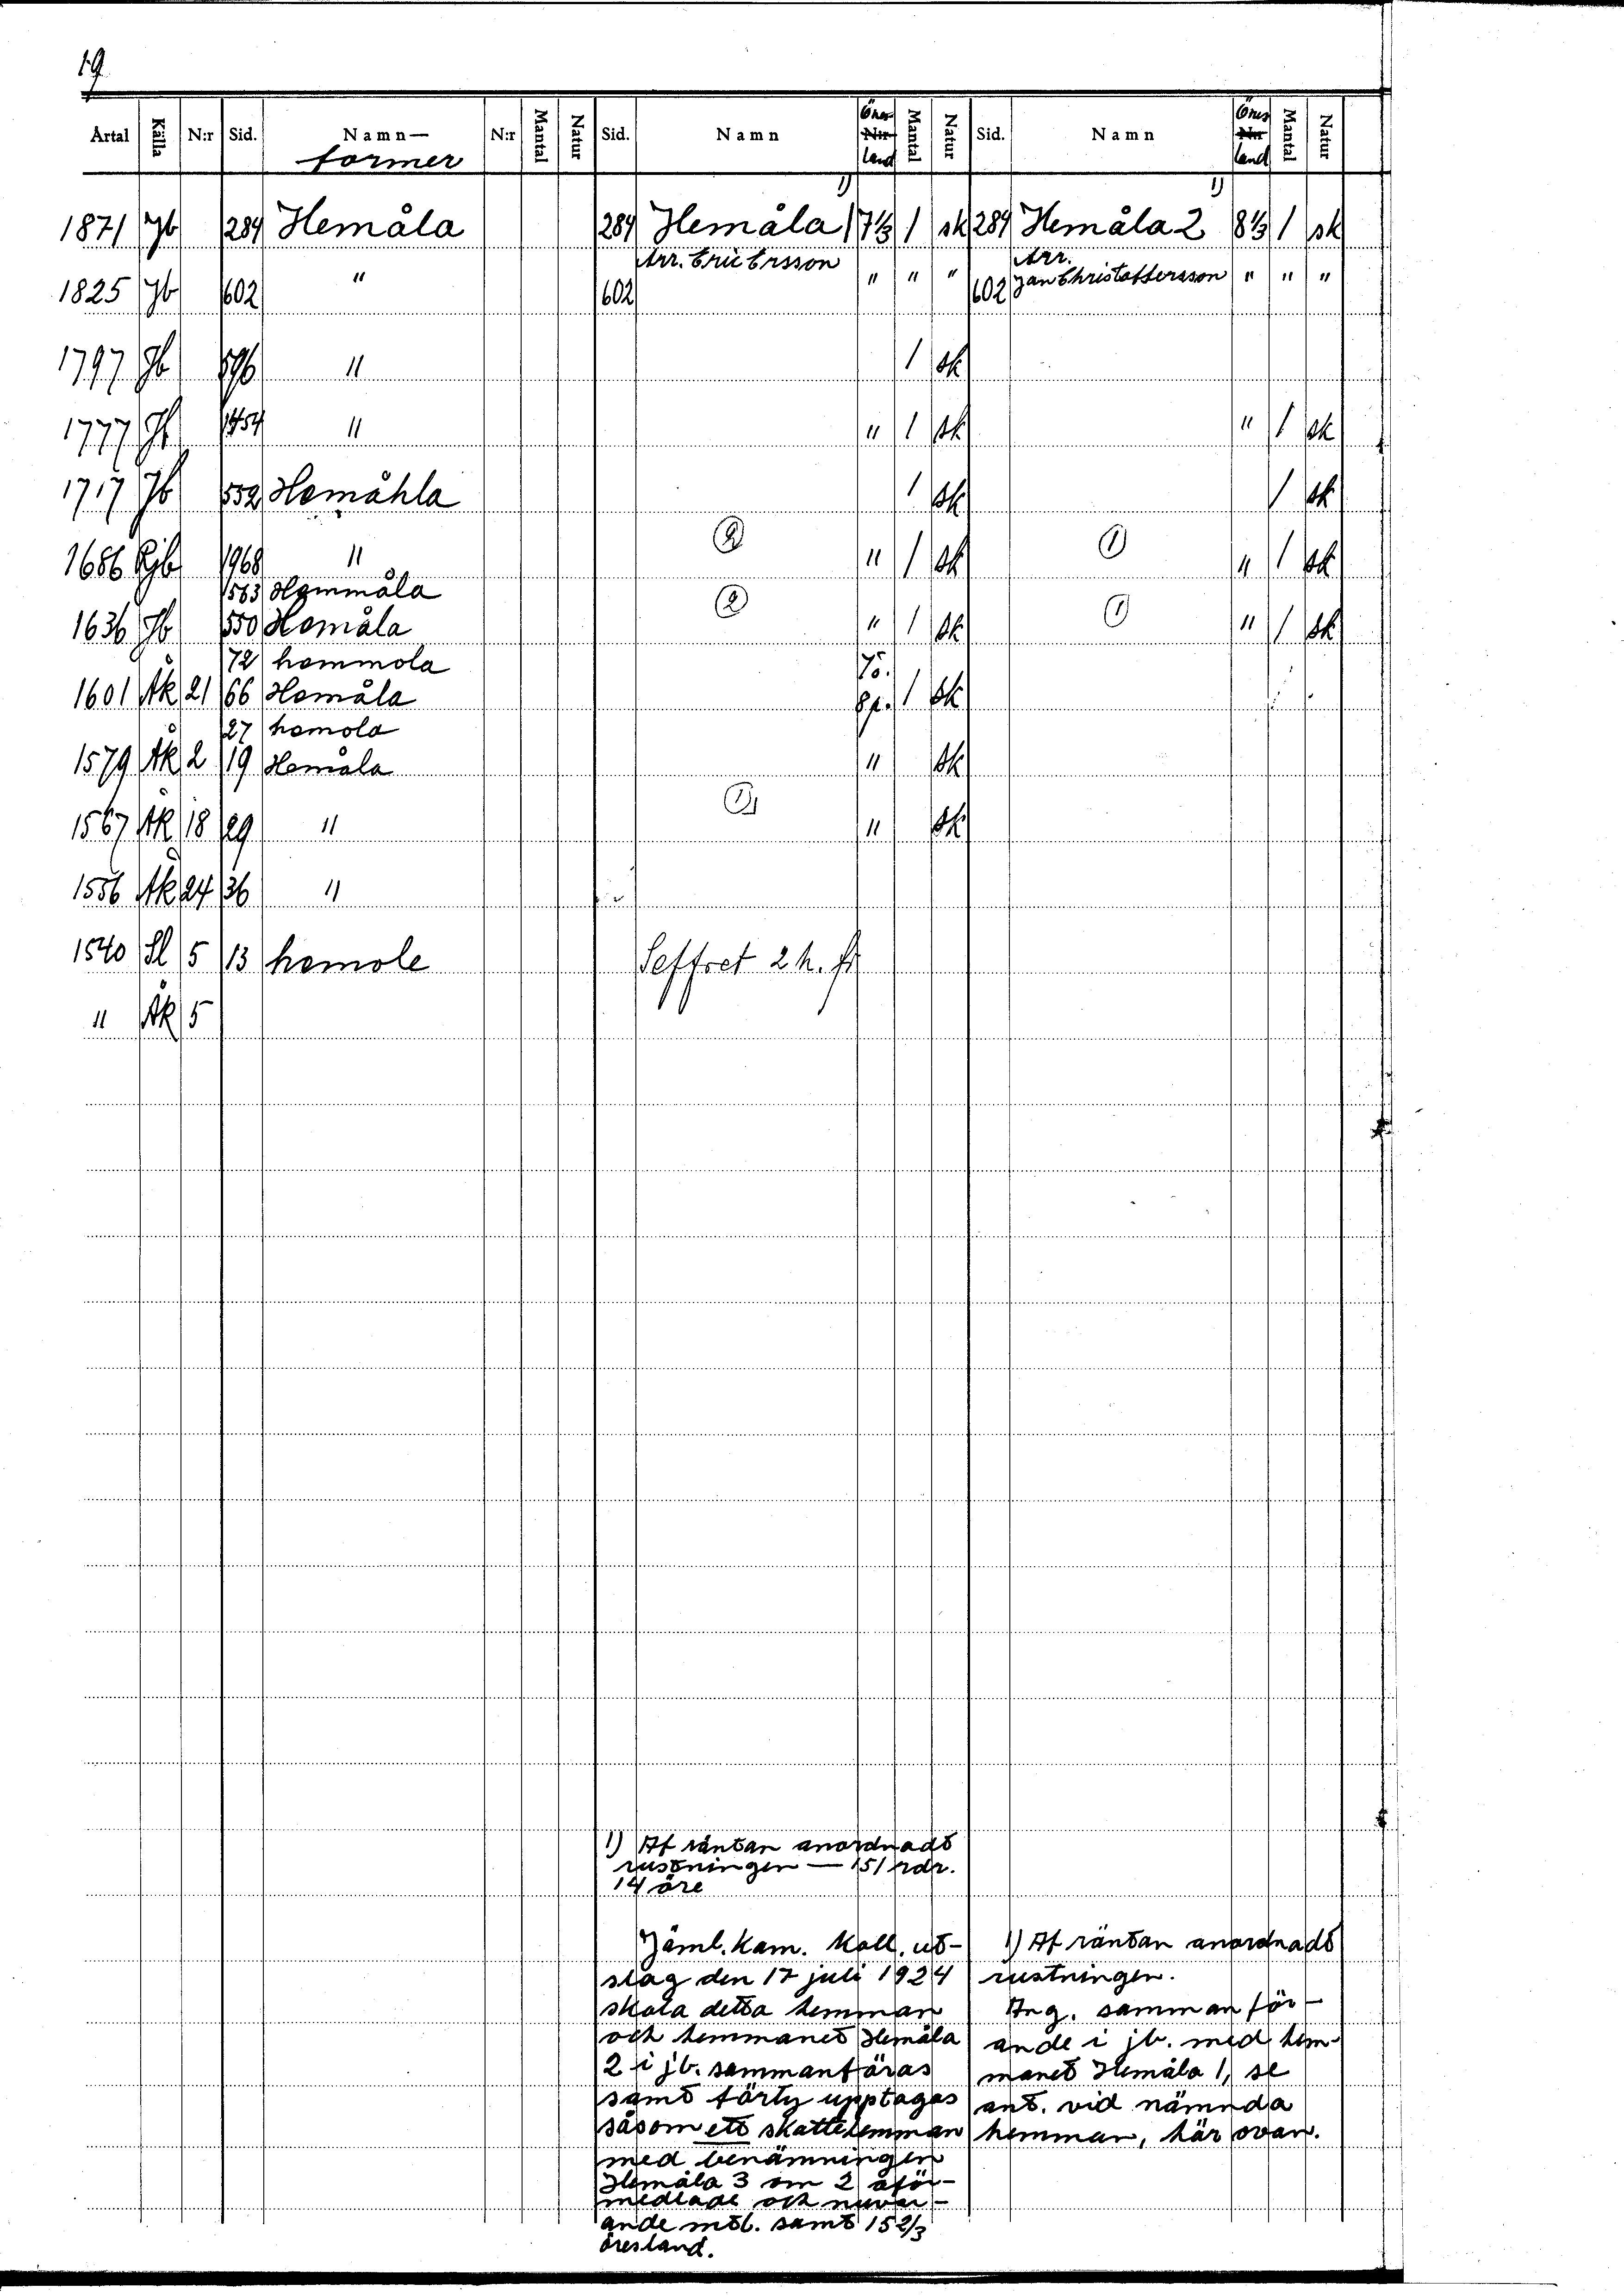 19
Årtal Källa N:r Sid. Namn— N:r Mantal Natur Sid. Namn Öres Ntr land Mantal Natur Sid. Namn Öres Ntr land Mantal Natur
former
1871 Jb 284 Hemåla 284 Hemåla 1 1) 7 1/3 1 sk 284 Hemåla 2 1) 8 1/3 1 sk
Arr. Eric Ersson Arr.
1825 Jb 602 " 602 " " " 602 Jan Christoffersson " " "
1797 Jb 596 " 1 sk
1777 Jb 1454 " " 1 sk " 1 sk
1717 Jb 552 Hemåhla 1 sk 1 sk
1686 Rjb 1968 " (2) " 1 sk (1) " 1 sk
1563 Hemmåla
1636 Jb 550 Hemåla (2) " 1 sk (1) " 1 sk
72 hemmola 7ö.
1601 Åk 21 66 Hemåla 8p. 1 sk
27 hemola
1579 Åk 2 19 Hemåla " sk
1567 Åk 18 29 " (1) " sk
1556 Åk 24 36 "
1540 Sl 5 13 hemole Seffret 2 h. fr
" Åk 5
1) Af räntan anordnadt
rustningen — 151 rdr.
14 öre
Jäml. Kam. Koll. ut-
slag den 17 juli 1924
skola detta hemman
och hemmanet Hemåla
2 i jb. sammanföras
samt förty upptagas
såsom ett skattehemman
med benämningen
Hemåla 3 om 2 oför-
medlade och nuvar-
ande mtl. samt 15 2/3
öresland.
1) Af räntan anordnadt
rustningen.
Ang. sammanför-
ande i jb. med hem-
manet Hemåla 1, se
ant. vid nämnda
hemman, här ovan.